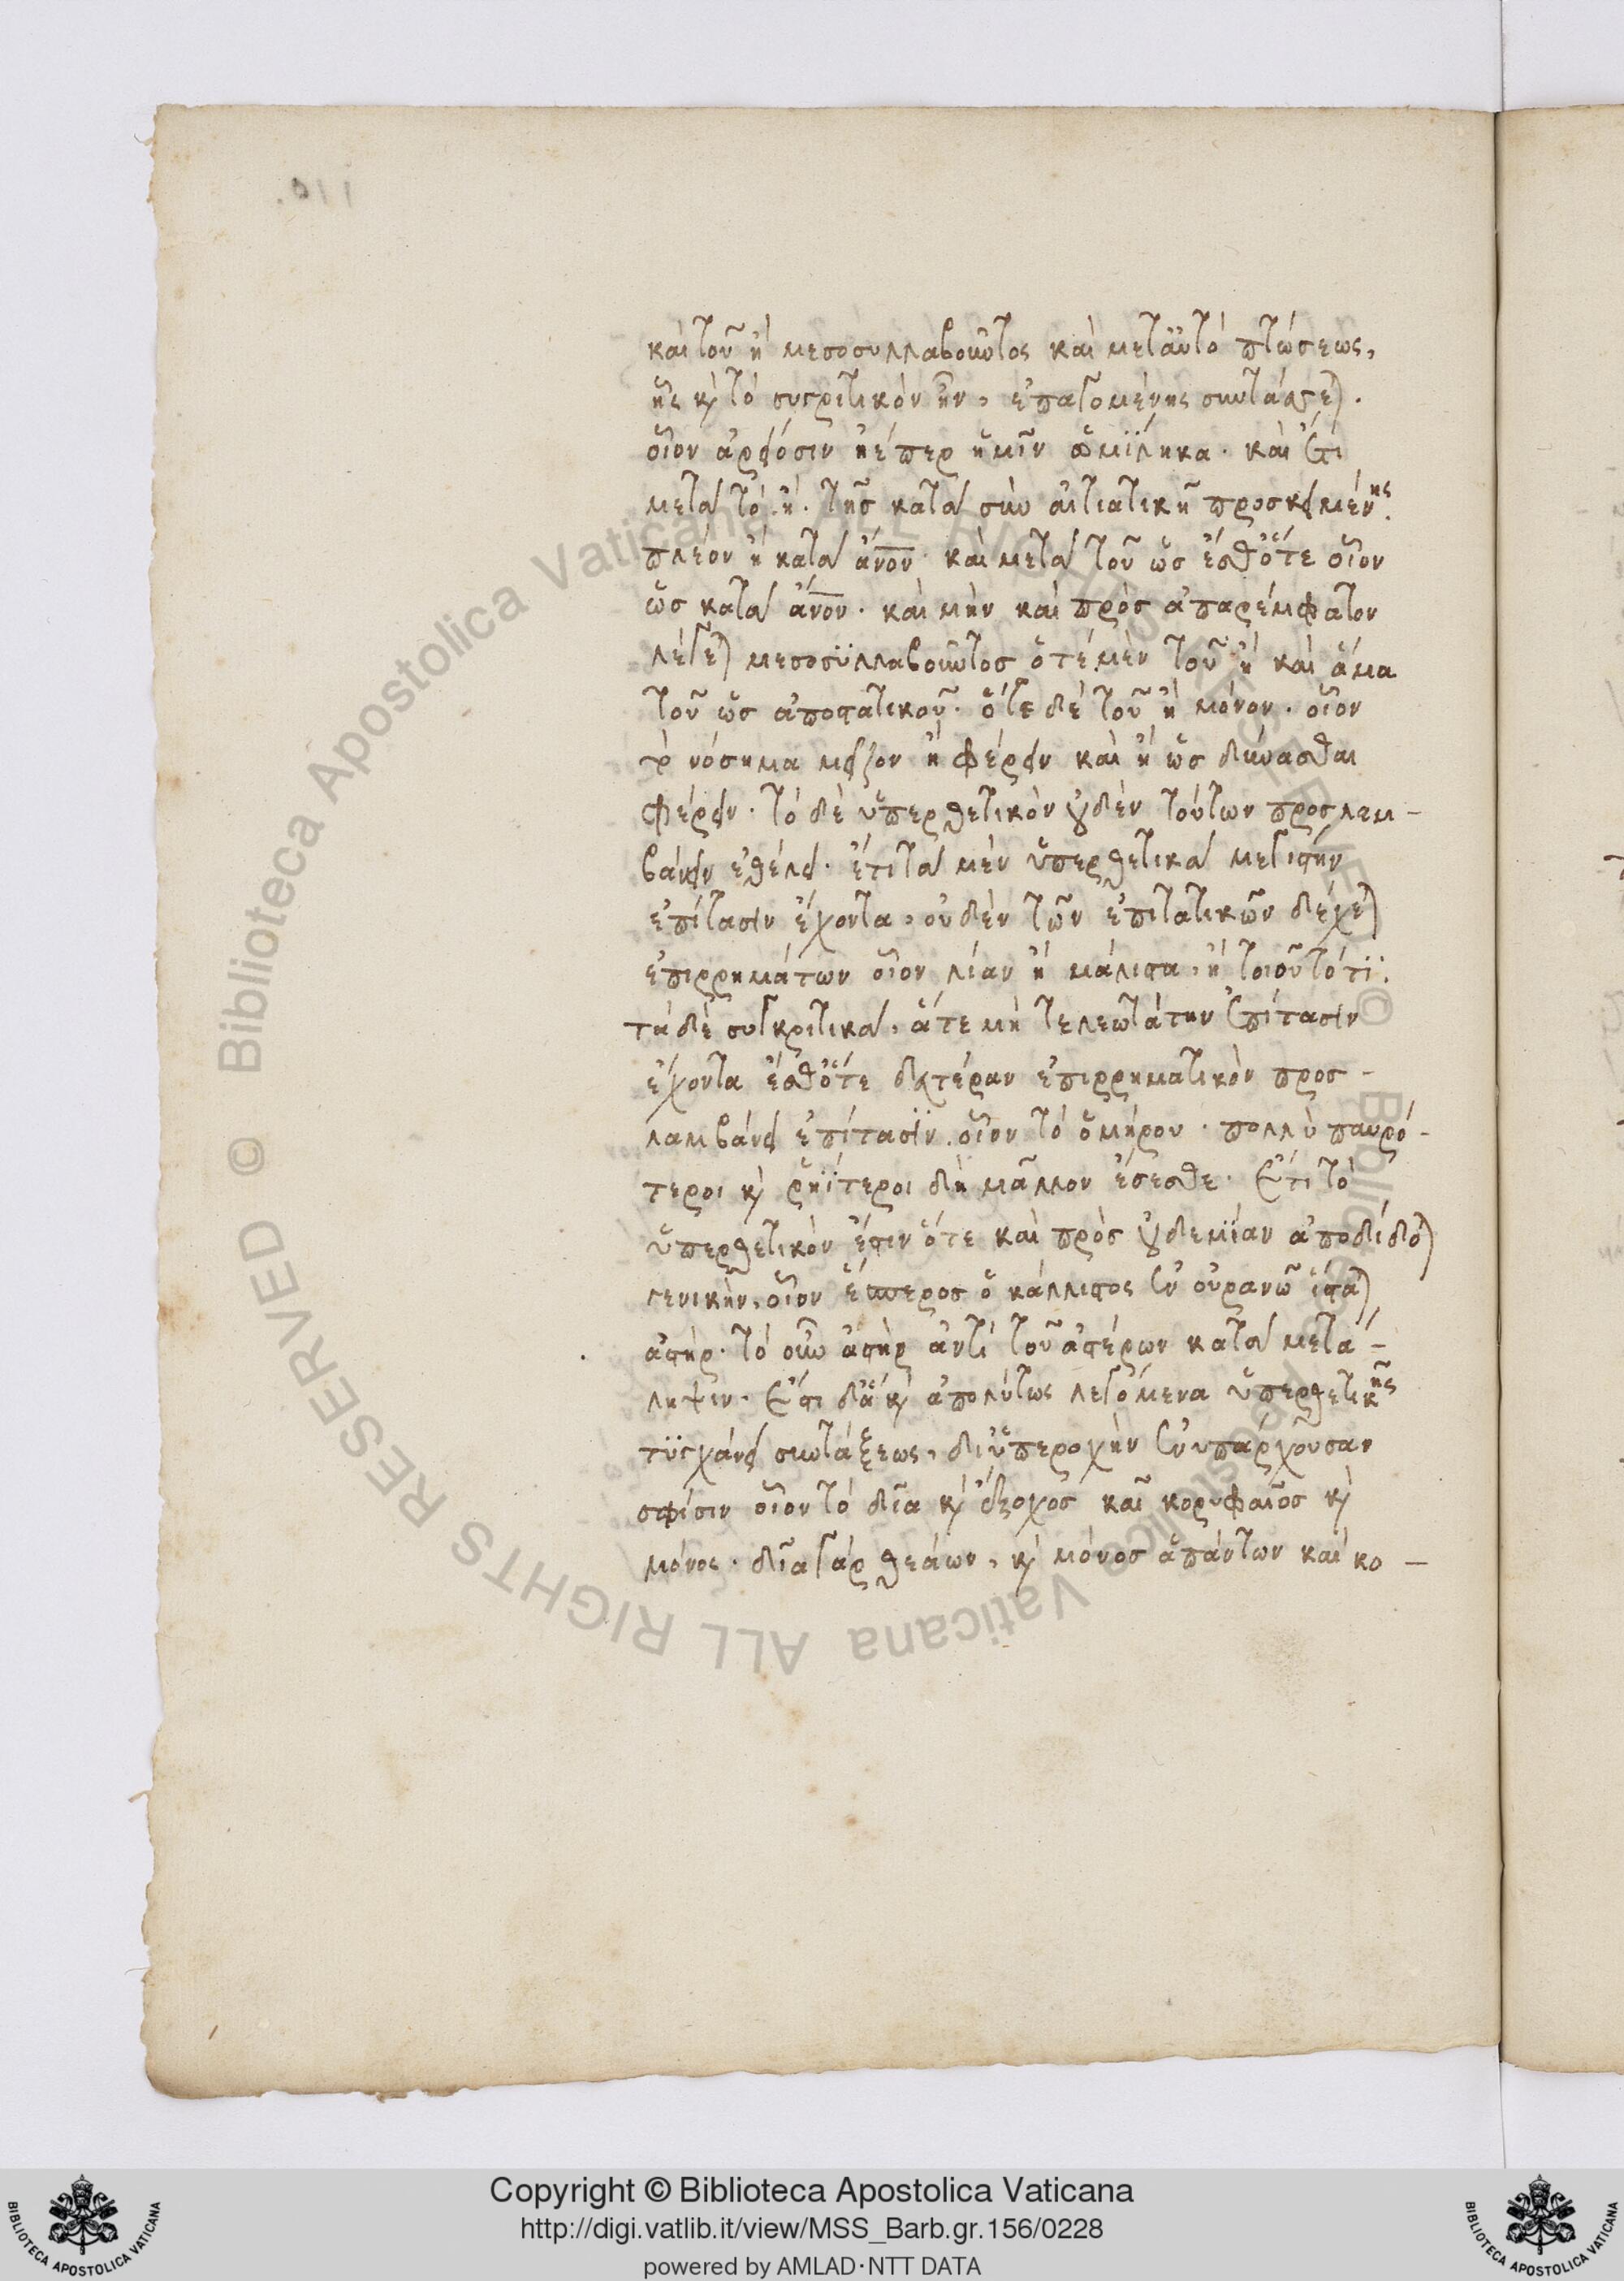 καὶ τοῦ ἢ μεσοσυλλαβοῦντος καὶ μεταυτὸ πτώσεως,
ἧς καὶ τὸ συγκριτικὸν ἦν, ἐπαγομένης συντάσσεται.
οἷον ἀρδόσιν ἠέπερ ὑμῖν ὡμίληκα. καὶ ἔτι
μετὰ τὸ ἢ. τῆς κατὰ σὺν αἰτιατικῇ προσκειμένης.
πλέον ἢ κατὰ ἄνον καὶ μετὰ τοῦ ὡς ἔσθότε οἷον
ὡς κατὰ ἄνον. καὶ μὴν καὶ πρὸς ἀπαρέμφατον
λέγεται μεσοσυλλαβοῦντος ὁτὲ μὲν τοῦ ἢ καὶ ἅμα
τοῦ ὡς ἀποφατικοῦ. ὅτε δὲ τοῦ ἢ μόνον. οἷον
τὸ νόσημα μεῖζον ἢ φέρειν καὶ ἢ ὡς δύνασθαι
φέρειν. τὸ δὲ ὑπερθετικὸν οὐδὲν τούτων προσλαμ-
βάνειν ἐθέλει. ἔτι τὰ μὲν ὑπερθετικὰ μεγίστην
ἐπίτασιν ἔχοντα, οὐδὲν τῶν ἐπιτατικῶν δέχεται
ἐπιρρημάτων οἷον λίαν ἢ μάλιστα, ἢ τοιοῦτό τι:
τὰ δὲ συγκριτικὰ, ἅτε μὴ τελεωτάτην ἐπίτασιν
ἔχοντα ἔσθότε δευτέραν ἐπιρρηματικὸν προσ-
λαμβάνει ἐπίτασιν. οἷον τὸ ὁμήρου. πολλὺ παυρό-
τεροι καὶ ῥηΐτεροι δὴ μᾶλλον ἔσεσθε. ἔτι τὸ
ὑπερθετικὸν ἔστιν ὅτε καὶ πρὸς οὐδεμίαν ἀποδίδοται
γενικὴν, οἷον ἕσπερος ὁ κάλλιστος ἐν οὐρανῷ ἵσταται
ἀστὴρ. τὸ οὖν ἀστὴρ ἀντὶ τοῦ ἀστέρων κατὰ μετά-
ληψιν. ἔστι δ' ἃ καὶ ἀπολύτως λεγόμενα ὑπερθετικῆς
τυγχάνει συντάξεως, δι' ὑπεροχὴν ἐνυπάρχουσαν
σφίσιν οἷον τὸ δῖα καὶ ἔξοχος καὶ κορυφαῖος καὶ
μόνος. δῖα γάρ θεάων, καὶ μόνος ἁπάντων καὶ κο-
Copyright © Biblioteca Apostolica Vaticana
http://digi.vatlib.it/view/MSS_Barb.gr.156/0228
powered by AMLAD·NTT DATA